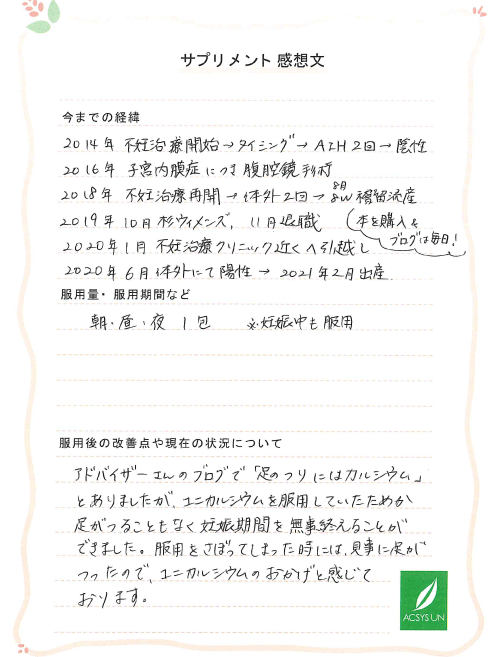 サプリメント 感想文
今までの経緯
2014年 不妊治療開始→タイミング→AIH2回→陰性
2016年 子宮内膜症につき腹腔鏡手術
2018年 不妊治療再開→体外2回→8月 8W稽留流産
2019年 10月 杉ウィメンズ, 11月退職 (本を購入&
2020年 1月 不妊治療クリニック近くへ引越し ブログは毎日!
2020年 6月 体外にて陽性 → 2021年2月出産
服用量・服用期間など
朝・昼・夜 1包 ※妊娠中も服用
服用後の改善点や現在の状況について
アドバイザーさんのブログで「足のつりにはカルシウム」
とありましたが、ユニカルシウムを服用していたためか
足がつることもなく妊娠期間を無事終えることが
できました。服用をさぼってしまった時には、見事に足が
つったので、ユニカルシウムのおかげと感じて
おります。
ACSYSUN